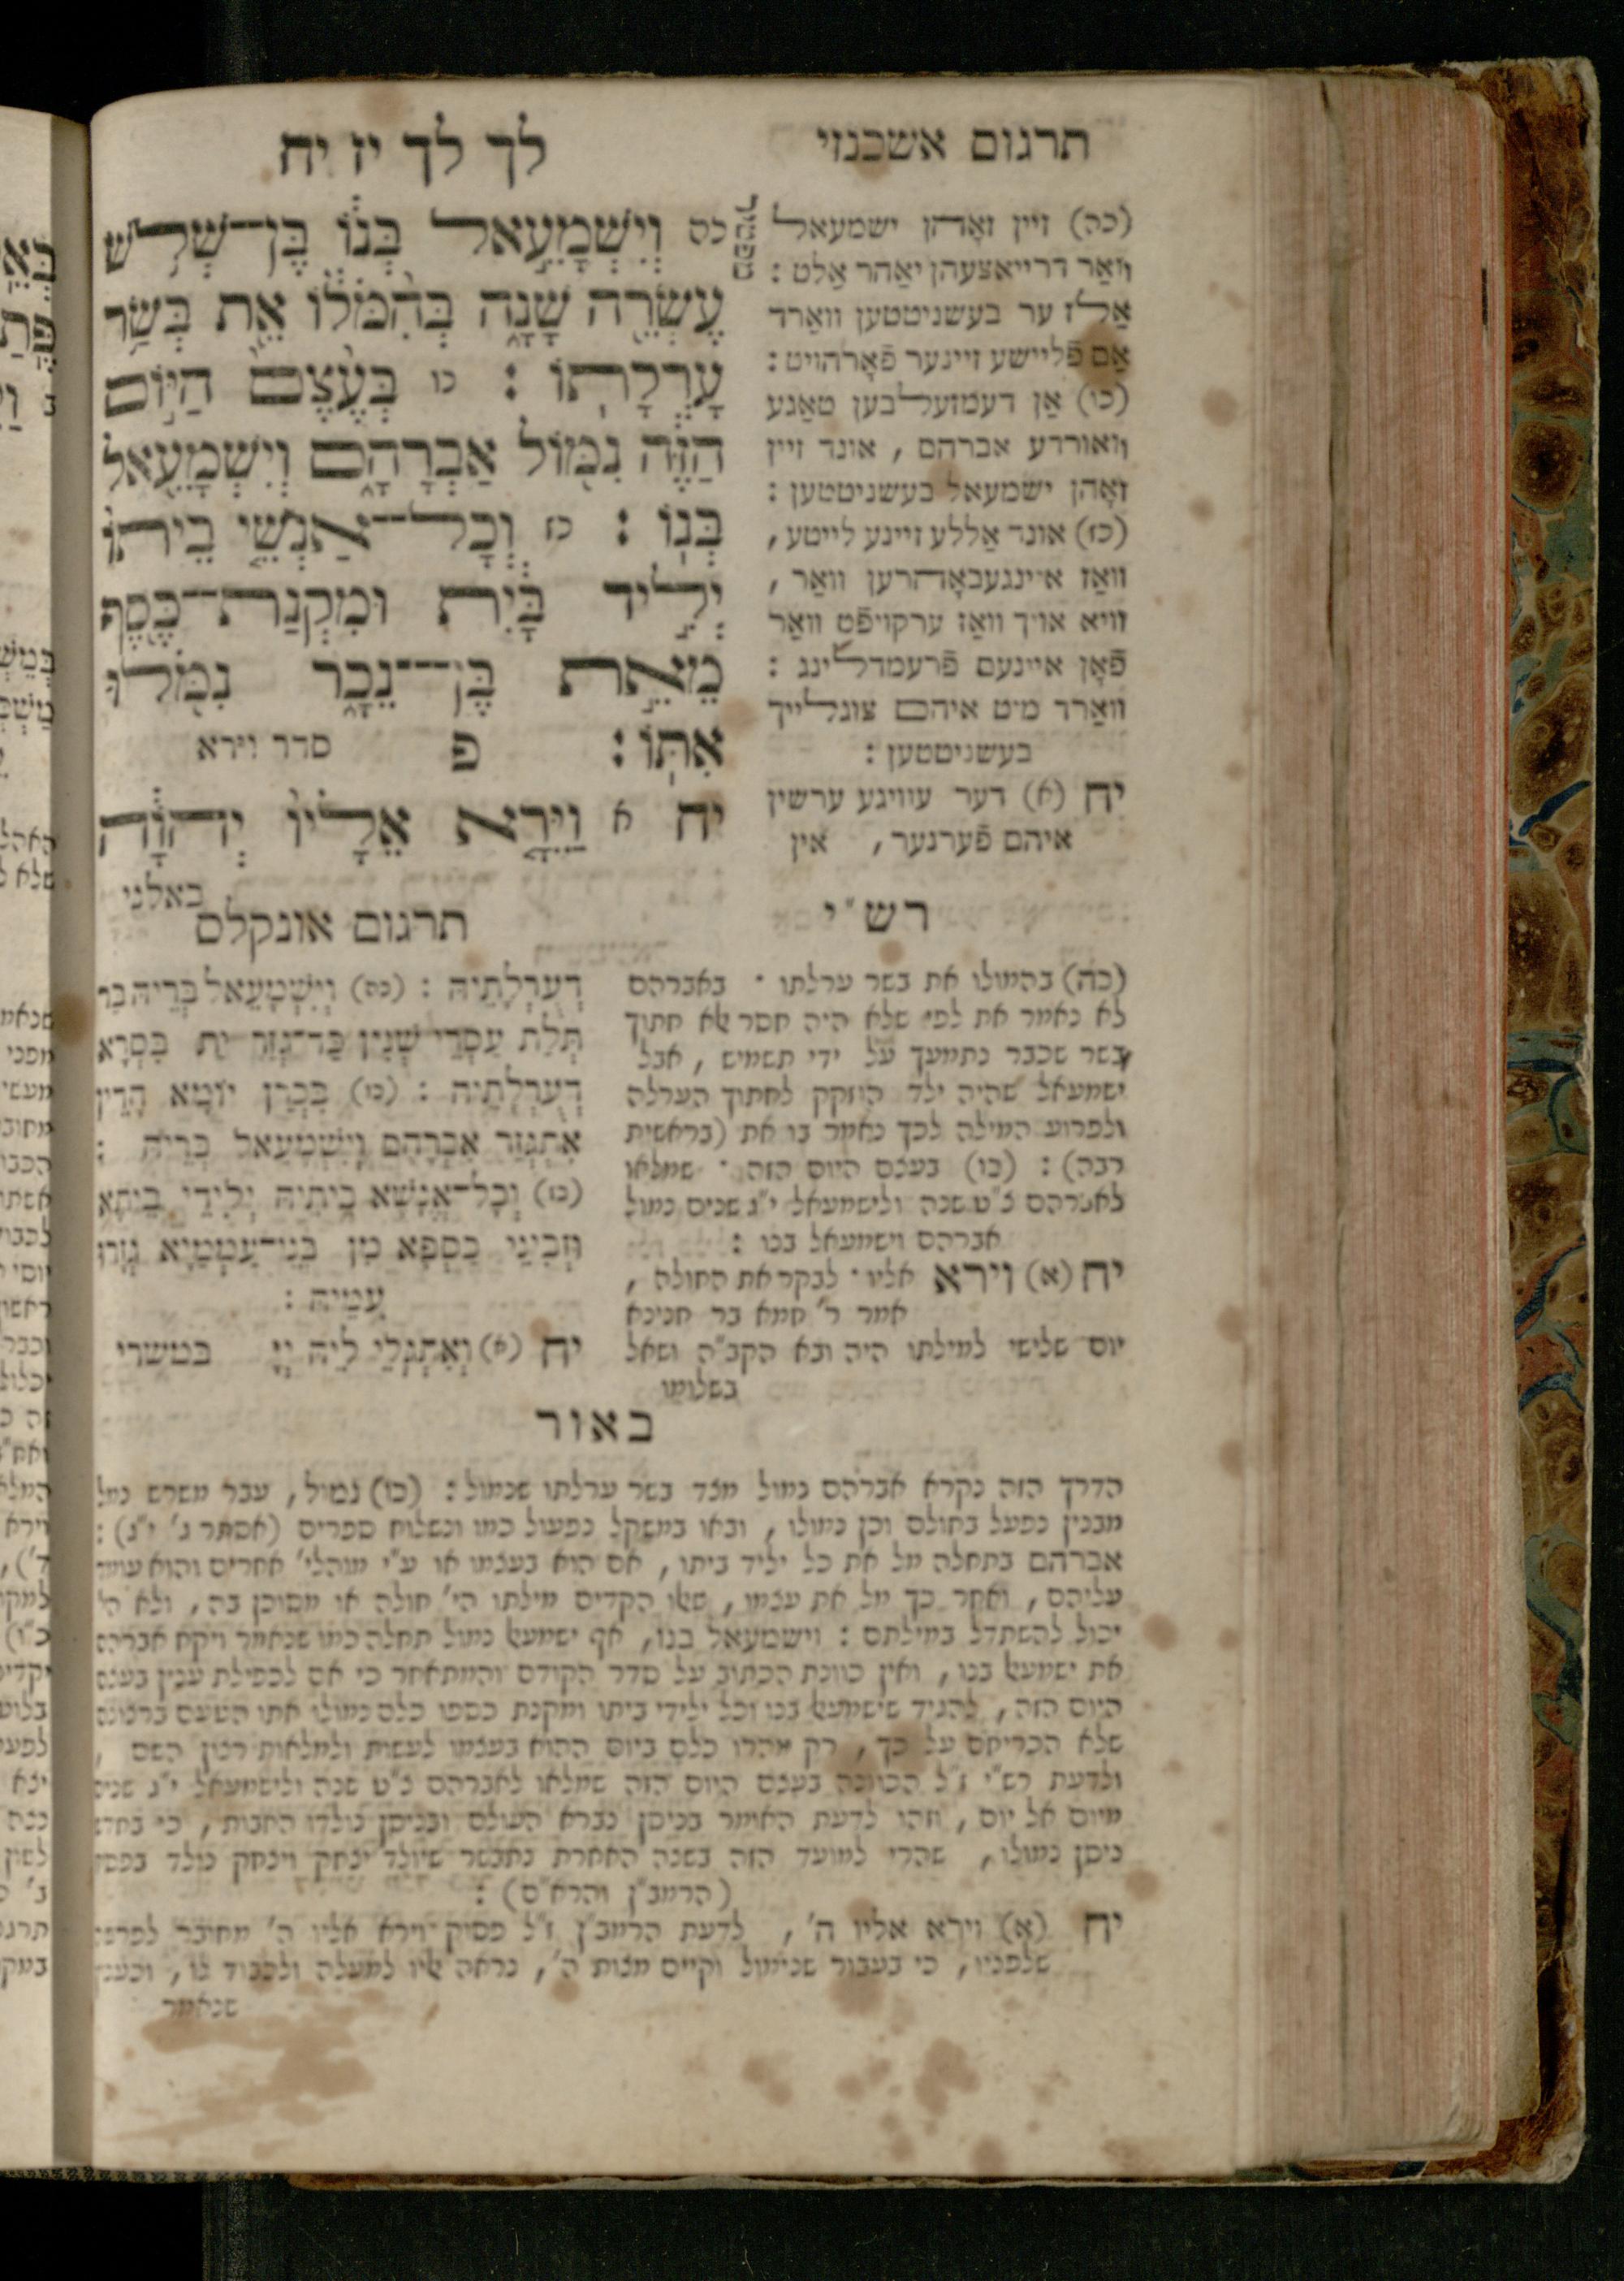 תרגום אשכנזי
לך לך יז יח
(כה) זיין זאָהן ישמעאל
וואַר דרייאצעהן יאַהר אַלט :
אַלז ער בעשניטטען וואַרד
אַם פֿליישע זיינער פֿאָרהויט :
(כו) אַן דעמזעלבען טאַגע
וואורדע אברהם , אונד זיין
זאָהן ישמעאל בעשניטטען :
(כז) אונד אַללע זיינע לייטע ,
וואַז איינגעבאָהרען וואַר ,
זוויא אויך וואַז ערקויפֿט וואַר
פֿאָן איינעם פֿרעמדלינג :
וואַרד מיט איהם צוגלייך
בעשניטטען :
יח (א) דער עוויגע ערשין
איהם פֿערנער , אין
מפטיר
כה וְיִשְׁמָעֵ֣אל בְּנ֔וֹ בֶּן־שְׁלֹ֥שׁ
עֶשְׂרֵ֖ה שָׁנָ֑ה בְּהִ֨מֹּל֔וֹ אֵ֖ת בְּשַׂ֥ר
עָרְלָתֽוֹ : כו בְּעֶ֨צֶם֙ הַיּ֣וֹם
הַזֶּ֔ה נִמּ֖וֹל אַבְרָהָ֑ם וְיִשְׁמָעֵ֖אל
בְּנֽוֹ : כז וְכָל־אַנְשֵׁ֤י בֵיתוֹ֙
יְלִ֣יד בָּ֔יִת וּמִקְנַת־כֶּ֖סֶף
מֵאֵ֣ת בֶּן־נֵכָ֑ר נִמֹּ֖לוּ
אִתּֽוֹ : פ סדר וירא
יח א וַיֵּרָ֤א אֵלָיו֙ יְהוָֹ֔ה
באלני
רש״י
(כה) בהמולו את בשר ערלתו . באברהם
לא נאמר את לפי שלא היה חסר אלא חתוך
בשר שכבר נתמעך על ידי תשמיש , אבל
ישמעאל שהיה ילד הוזקק לחתוך הערלה
ולפרוע המילה לכך נאמר בו את (בראשית
רבה) : (כו) בעצם היום הזה . שמלאו
לאברהם צ״ט שנה ולישמעאל י״ג שנים נמול
אברהם וישמעאל בנו :
יח (א) וירא אליו . לבקר את החולה ,
אמר ר׳ חמא בר חנינא
יום שלישי למילתו היה ובא הקב״ה ושאל
בשלומו
תרגום אונקלס
דְעָרְלָתֵיהּ : (כה) וְיִשְׁמָעֵאל בְּרֵיהּ בַּר
תְּלַת עַסְרֵי שְׁנִין כַּד־גְּזַר יָת בִּסְרָא
דְעָרְלָתֵיהּ : (כו) בִּכְרַן יוֹמָא הָדֵין
אִתְגְּזַר אַבְרָהָם וְיִשְׁמָעֵאל בְּרֵיהּ :
(כז) וְכָל־אֱנָשֵׁא בֵיתֵיהּ יְלִידֵי בֵיתָא
וּזְבִינֵי כַסְפָּא מִן בְּנֵי־עַמְמַיָּא גְּזָרוּ
עִמֵּיהּ :
יח (א) וְאִתְגְּלִי לֵיהּ יְיָ במשרי
באור
הדרך הזה נקרא אברהם נמול מצד בשר ערלתו שנמול : (כו) נמול , עבר משרש נמל
מבנין נפעל בחולם וכן נמולו , ובאו במשקל נפעול כמו ונשלוח ספרים (אסתר ג׳ י״ג) :
אברהם בתחלה מל את כל יליד ביתו , אם הוא בעצמו או ע״י מוהלי׳ אחרים והוא עומד
עליהם , ואחר כך מל את עצמו , שאלו הקדים מילתו הי׳ חולה או מסוכן בה , ולא הי׳
יכול להשתדל במילתם : וישמעאל בנו , אף ישמעאל נמול תחלה כמו שנאמר ויקח אברהם
את ישמעאל בנו , ואין כוונת הכתוב על סדר הקודם והמתאחר כי אם לכפילת ענין בעצם
היום הזה , להגיד שישמעאל בנו וכל ילידי ביתו ומקנת כספו כלם נמולו אתו הטעם ברצונם
שלא הכריחם על כך , רק מהרו כלם ביום ההוא בעצמו לעשות ולמלאות רצון השם ,
ולדעת רש״י ז״ל הכוונה בעצם היום הזה שמלאו לאברהם צ״ט שנה ולישמעאל י״ג שנים
מיום אל יום , וזהו לדעת האומר בניסן נברא העולם ובניסן נולדו האבות , כי בחדש
ניסן נמולו , שהרי למועד הזה בשנה האחרת נתבשר שיולד יצחק ויצחק נולד בפסח
(הרמב״ן והרא״ם) :
יח (א) וירא אליו ה׳ , לדעת הרמב״ן ז״ל פסוק וירא אליו ה׳ מחובר לפרשה
שלפניו , כי בעבור שנימול וקיים מצות ה׳ , נראה אליו למעלה ולכבוד לו , וכענין
שנאמר